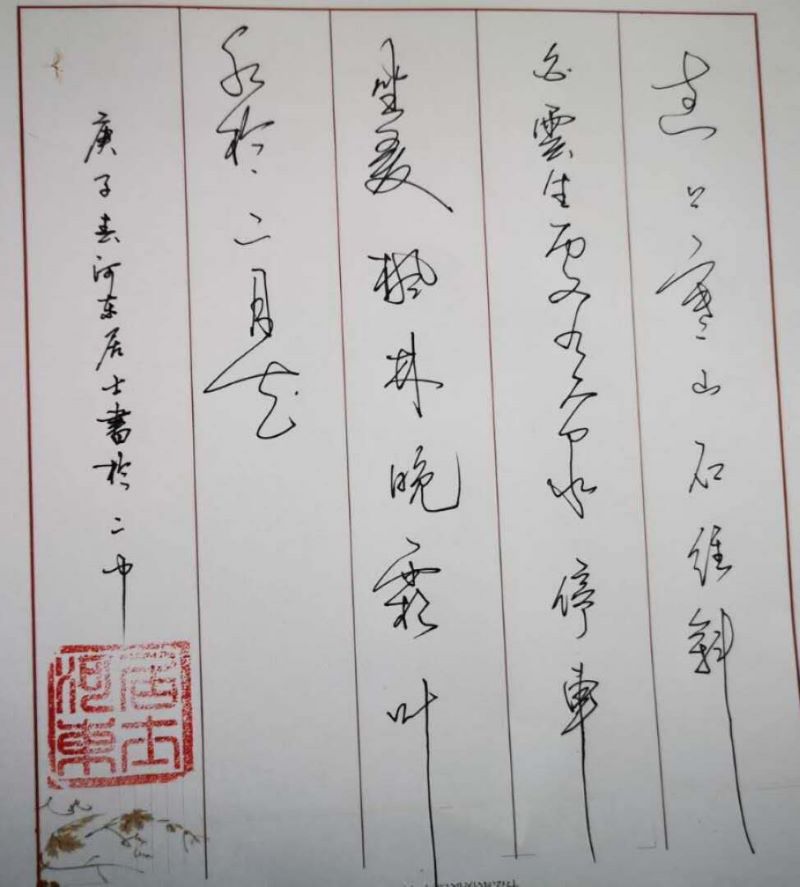 远上寒山石径斜
白雲生處有人家停車
坐爱枫林晚霜叶
红於二月花
庚子春河东居士書於二中
居士河東